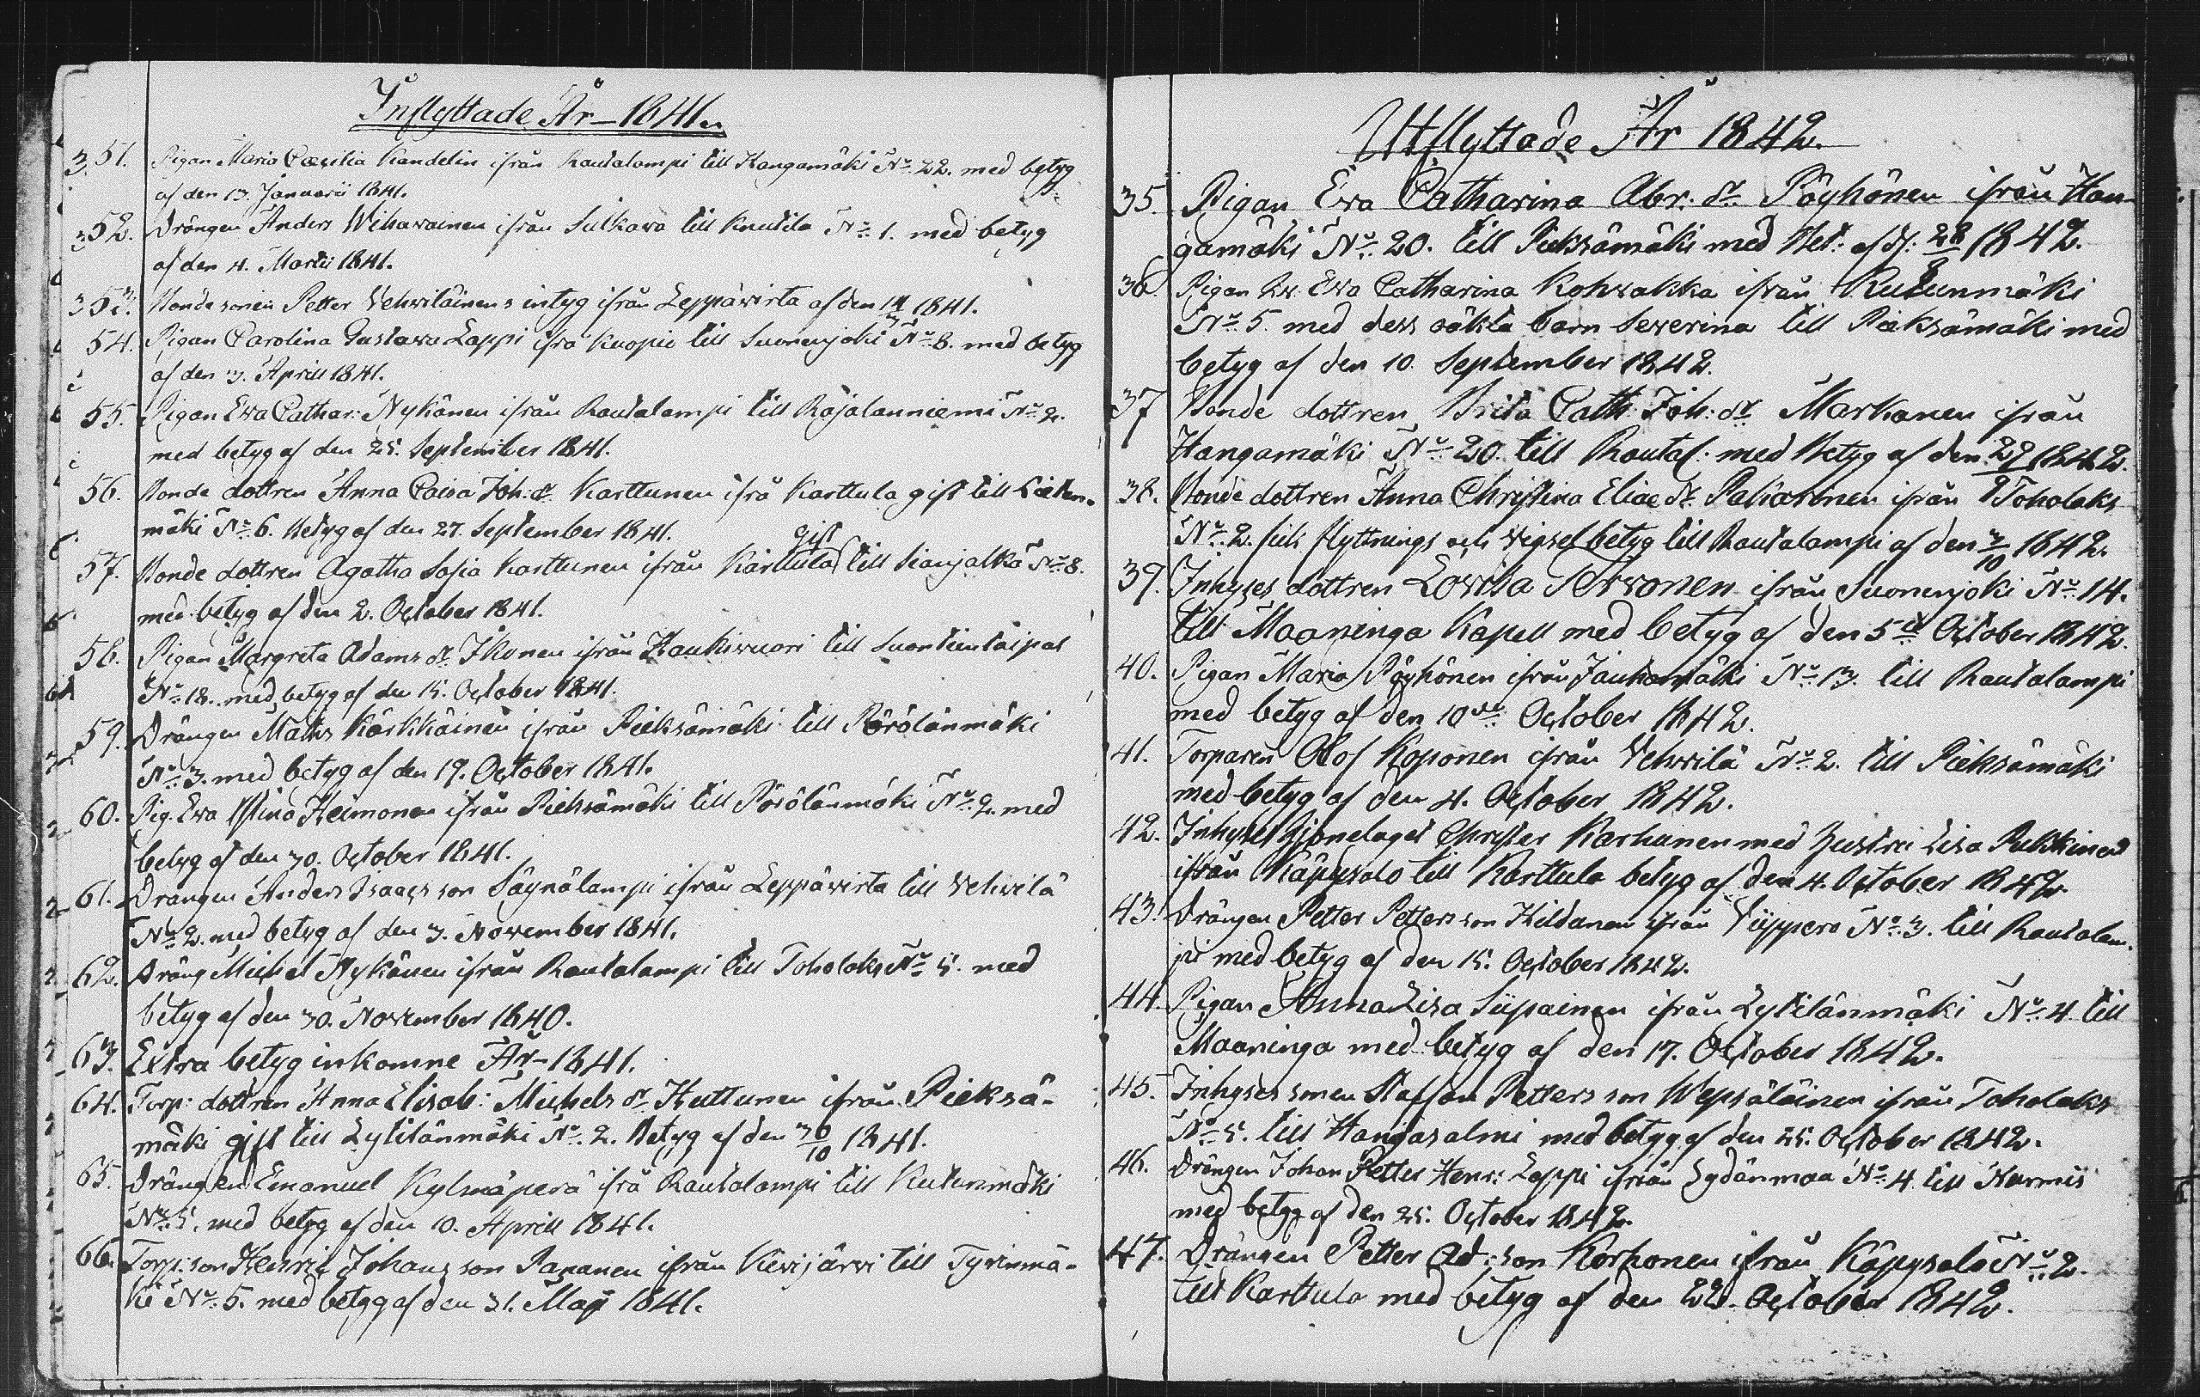 Inflyttade År 1841.
51. Pigan Maria Cæcilia Kandelin ifrån Rautalampi till Hangamäki No 22. med betyg
af den 13. Januarii 1841.
52. Drängen Anders Wihavainen ifrån Sulkava till Knutila No 1. med betyg
af den 4. Martii 1841.
53. Bonde sonen Petter Vehviläinens intyg ifrån Leppävirta af den 1841.
54. Pigan Carolina Gustava Lappi ifrå Kuopio till Suonenjoki No 8. med betyg
af den 3. Aprill 1841.
55. Pigan Eva Cathar: Nykänen ifrån Rautalampi till Räjälänniemi No 2.
med betyg af den 25. September 1841.
56. Bonde dottren Anna Caisa Joh: dr Karttunen ifrå Karttula gift till
mäki No 6. Betyg af den 27. September 1841.
57. Bonde dottren Agatha Sofia Karttunen ifrån Karttula gift till Sianjalka No 8.
med betyg af den 2. October 1841.
58. Pigan Margreta Adams dr Ikonen ifrån Haukivuori till Suontientaipal
No 18. med betyg af den 15. October 1841.
59. Drängen Maths Kärkkäinen ifrån Pieksämäki till Pörölänmäki
No 3. med betyg af den 19. October 1841.
60. Pig. Eva Stina Heimonen ifrån Pieksämäki till Pörölänmäki No 2. med
betyg af den 30. October 1841.
61. Drängen Anders Isaacs son Säynälampi ifrån Leppävirta till Vehvilä
No 2. med betyg af den 3. November 1841.
62. Dräng Michel Nykänen ifrån Rautalampi till Toholaks No 5. med
betyg af den 30. November 1840.
63. Extra betyg inkomne År 1841.
64. Torp: dottren Anna Elisab: Michels dr Huttunen ifrån Pieksä-
mäki gift till Lytilänmäki No 2. Betyg af den 30/10 1841.
65. Drängen Emanuel Kylmäperä ifrå Rautalampi till Kutunmäki
No 5. med betyg af den 10. Aprill 1841.
66. Torp: son Henric Johans son Papanen ifrån Kivijärvi till Tyrinmä-
ki No 5. med betyg af den 31. Maji 1841.
Utflyttade År 1842.
35. Pigan Eva Catharina Abr. dr Pöyhönen ifrån Han-
gamäki No 20. till Pieksämäki med Bet: af d: 28/8 1842.
36. Pigan Eva Catharina Kohvakka ifrån Kutunmäki
No 5. med dess oäkta barn Severina till Pieksämäki med
betyg af den 10. September 1842.
37 Bonde dottren Brita Cath: Joh: dr Markanen ifrån
Hangamäki No 20. till Rautal: med Betyg af den 29 1842.
38. Bonde dottren Anna Christina Eliae dr ifrån Toholaks
No 2. fick flyttnings och vigsel betyg till Rautalampi af den 3/10 1842.
39. Inhyses dottren Lovisa Tervonen ifrån Suonenjoki No 14.
till Maaninga Kapell med betyg af den 5te October 1842.
40. Pigan Maria Pöyhönen ifrån Jauhomäki No 13. till Rautalampi
med betyg af den 10de October 1842.
41. Torparen Olof Koponen ifrån Vehvilä No 2. till Pieksämäki
med betyg af den 4. October 1842.
42. Inhyses hjonelaget Christer Karhunen med hustru Lisa Pukkinen
ifrån Käpysalo till Karttula betyg af den 4. October 1842
43. Drängen Petter Petters son Hildanen ifrån Viippero No 3. till Rautalam-
pi med betyg af den 15. October 1842.
44. Pigan Anna Lisa Siipainen ifrån Lytilänmäki No 4. till
Maaninga med betyg af den 17. October 1842.
45. Inhyses sonen Staffan Petters son Wepsäläinen ifrån Toholaks
No 5. till Hangasalmi med betyg af den 25. October 1842.
46. Drängen Johan Petter Henr: Lappi ifrån Lydänmaa No 4. till Nurmis
med betyg af den 25. October 1842.
47. Drängen Petter Ad: son Korhonen ifrån Käpysalo No 2.
till Karttula med betyg af den 22. October 1842.